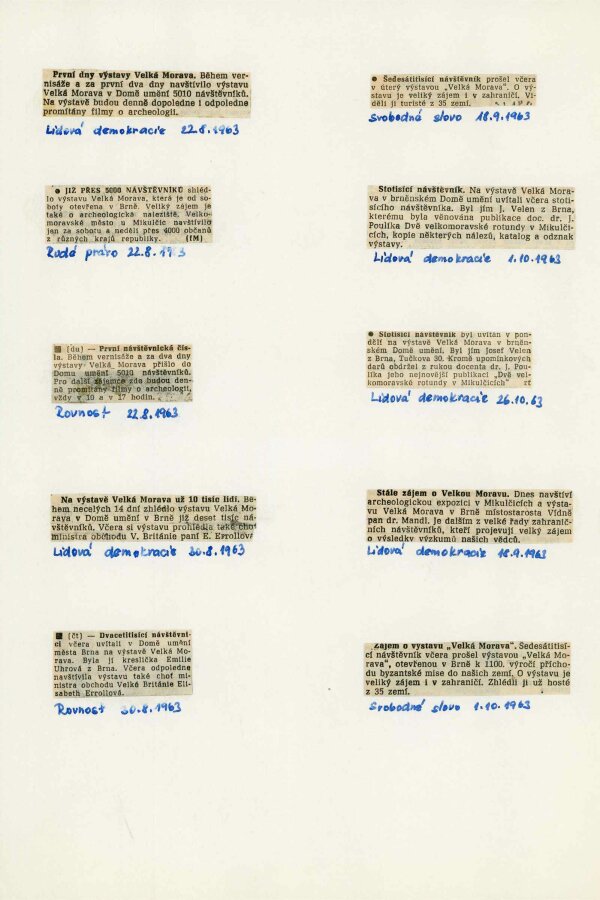 První dny výstavy Velká Morava. Během ver-
nisáže a za první dva dny navštívilo výstavu
Velká Morava v Domě umění 5010 návštěvníků.
Na výstavě budou denně dopoledne i odpoledne
promítány filmy o archeologii.
Lidová demokracie 22.8.1963
● JIŽ PŘES 5000 NÁVŠTĚVNÍKŮ shléd-
lo výstavu Velká Morava, která je od so-
boty otevřena v Brně. Velký zájem je
také o archeologické naleziště. Velko-
moravské město u Mikulčic navštívilo
jen za sobotu a neděli přes 4000 občanů
z různých krajů republiky. (fM)
Rudé právo 22.8.1963
■ (du) — První návštěvnická čís-
la. Během vernisáže a za dva dny
výstavy Velká Morava přišlo do
Domu umění 5010 návštěvníků.
Pro další zájemce zde budou den-
ně promítány filmy o archeologii,
vždy v 10 a v 17 hodin.
Rovnost 22.8.1963
Na výstavě Velká Morava už 10 tisíc lidí. Be-
hem necelých 14 dní zhlédlo výstavu Velká Mo-
rava v Domě umění v Brně již deset tisíc ná-
vštěvníků. Včera si výstavu prohlédla také choť
ministra obchodu V. Británie paní E. Errollov
Lidová demokracie 30.8.1963
■ (čt) — Dvacetitisící návštěvní-
ci včera uvítali v Domě umění
města Brna na výstavě Velká Mo-
rava. Byla jí kreslička Emilie
Uhrová z Brna. Včera odpoledne
navštívila výstavu také choť mi-
nistra obchodu Velké Británie Eli-
sabeth Errollová.
Rovnost 30.8.1963
● Šedesátitisící návštěvník prošel včera
v úterý výstavou „Velká Morava". O vý-
stavu je veliký zájem i v zahraničí. Vi-
děli ji turisté z 35 zemí.
Svobodné slovo 18.9.1963
Stotisící návštěvník. Na výstavě Velká Mora-
va v brněnském Domě umění uvítali včera stoti-
sícího návštěvníka. Byl jím J. Velen z Brna,
kterému byla věnována publikace doc. dr. J.
Poulíka Dvě velkomoravské rotundy v Mikulči-
cích, kopie některých nálezů, katalog a odznak
výstavy.
Lidová demokracie 1.10.1963
● Stotisící návštěvník byl uvítán v pon-
dělí na výstavě Velká Morava v brněn-
ském Domě umění. Byl jím Josef Velen
z Brna, Tučkova 30. Kromě upomínkových
darů obdržel z rukou docenta dr. J. Pou-
líka jeho nejnovější publikaci „Dvě vel-
komoravské rotundy v Mikulčicích" rt
Lidová demokracie 26.10.63
Stále zájem o Velkou Moravu. Dnes navštíví
archeologickou expozici v Mikulčicích a výsta-
vu Velká Morava v Brně místostarosta Vídně
pan dr. Mandl. Je dalším z velké řady zahranič-
ních návštěvníků, kteří projevují velký zájem
o výsledky výzkumů našich vědců.
Lidová demokracie 18.9.1963
Zájem o výstavu „Velká Morava". Šedesátitisí-
cí návštěvník včera prošel výstavou „Velká Mo-
rava", otevřenou v Brně k 1100. výročí přícho-
du byzantské mise do našich zemí. O výstavu je
veliký zájem i v zahraničí. Zhlédli ji už hosté
z 35 zemí.
Svobodné slovo 1.10.1963